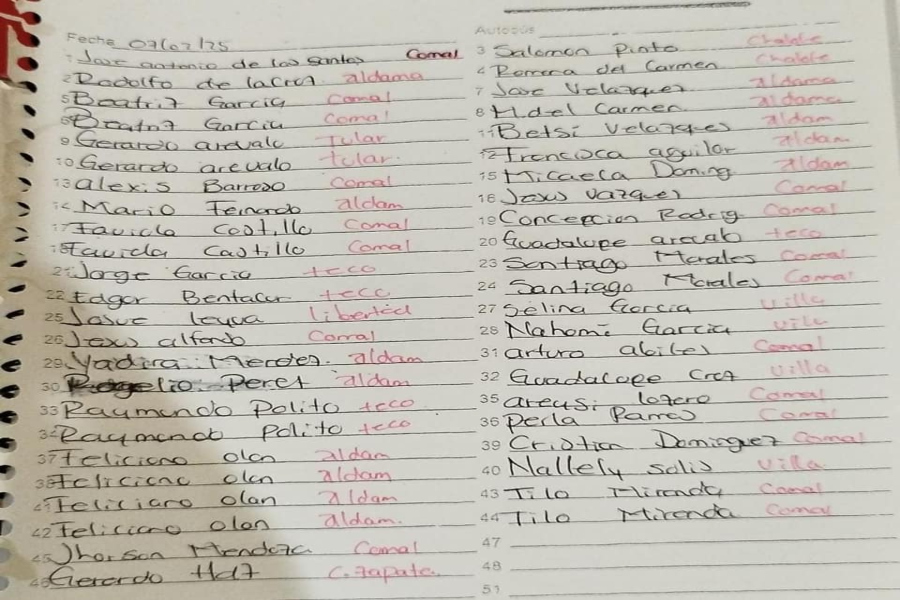 Fecha 07/07/25
Autobús
1 Jose antonio de los santos Comal
2 Rodolfo de la Croz aldama
3 Salomon Pinto Chalale
4 Romera del Carmen Chalale
5 Beatriz Garcia Comal
6 Beatriz Garcia Comal
7 Jose Velazquez aldama
8 H. del Carmen aldama
9 Gerardo arevalo tular
10 Gerardo arevalo tular.
11 Betsi Velazques aldam
12 Francisca aguilar aldam
13 alexis Barroso Comal
14 Mario Fernando aldam
15 Micaela Doming aldam
16 Jesus Vazquez Comal
17 Favicla Castillo Comal
18 Favicla Castillo Comal
19 Concepcion Rodrig Comal
20 Guadalupe arecab teco
21 Jorge Garcia teco
22 Edgar Bentacur teco
23 Santiago Morales Comal
24 Santiago Morales Comal
25 Josue leyva libertad
26 Jesus alfardo Corral
27 Selina Garcia Villa
28 Nahomi Garcia Villa
29 Yadira Merdez. aldam
30 Rogelio Perez aldam
31 arturo abiles Comal
32 Guadalupe Croz Villa
33 Raymundo Polito teco
34 Raymundo Polito teco
35 areusi lozero Comal
36 Perla Ramos Comal
37 Feliciano olan aldam
38 Feliciano olan aldam
39 Cristian Dominguez Comal
40 Nallely solis Villa
41 Feliciano olan aldam
42 Feliciano olan aldam.
43 Tilo Miranda Comal
44 Tilo Miranda Comal
45 Jhorson Mendoza Comal
46 Gerardo Hdz C. zapata.
47
48
51